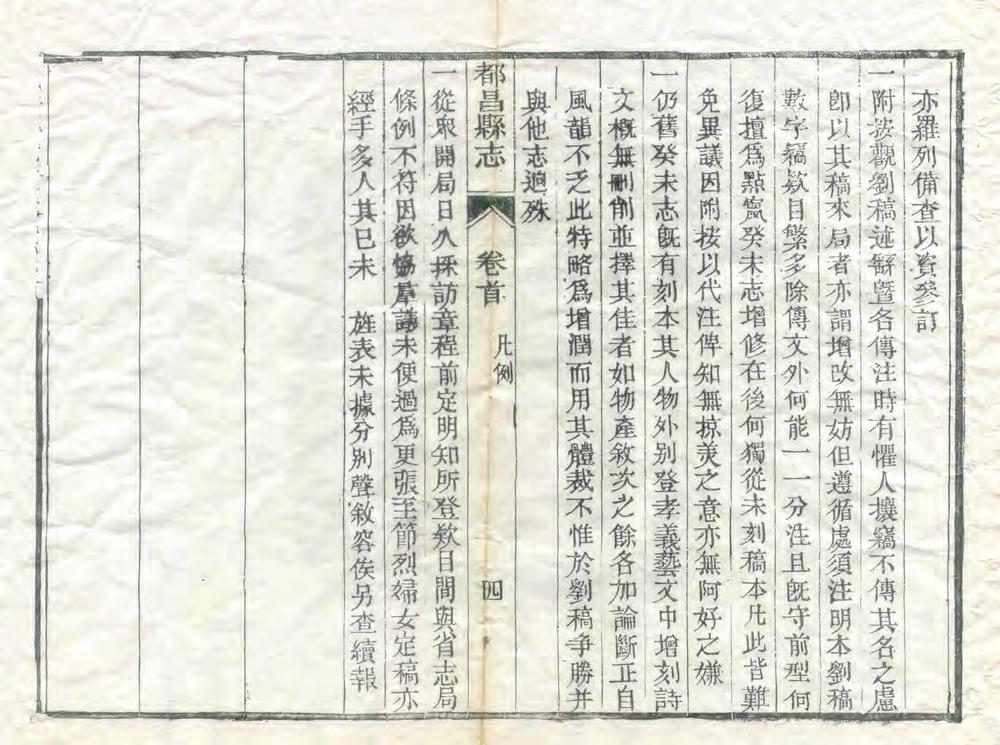 亦羅列備查以資參訂
一附按觀劉稿述辭暨各傳注時有懼人攘竊不傳其名之慮
卽以其稿來局者亦謂增改無妨但遵循處須注明本劉稿
數字竊欵目繁多除傳文外何能一一分注且旣守前型何
復擅爲點竄癸未志增修在後何獨從未刻稿本凡此皆難
免異議因附按以代注俾知無掠美之意亦無阿好之嫌
一仍舊癸未志旣有刻本其人物外别登孝義藝文中增刻詩
文槪無刪削並擇其佳者如物產敘次之餘各加論斷正自
風韻不乏此特略爲增潤而用其體裁不惟於劉稿爭勝并
與他志逈殊
都昌縣志
卷首
凡例
四
一從衆開局日久採訪章程前定明知所登欵目間與省志局
條例不符因欲協羣議未便過爲更張至節烈婦女定稿亦
經手多人其已未 旌表未據分别聲敘容俟另查續報